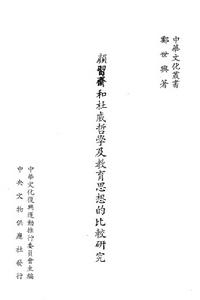 中華文化叢書
鄭世興著
顏習齋和杜威哲學及教育思想的比較研究
中華文化復興運動推行委員會主編
中央文物供應社發行